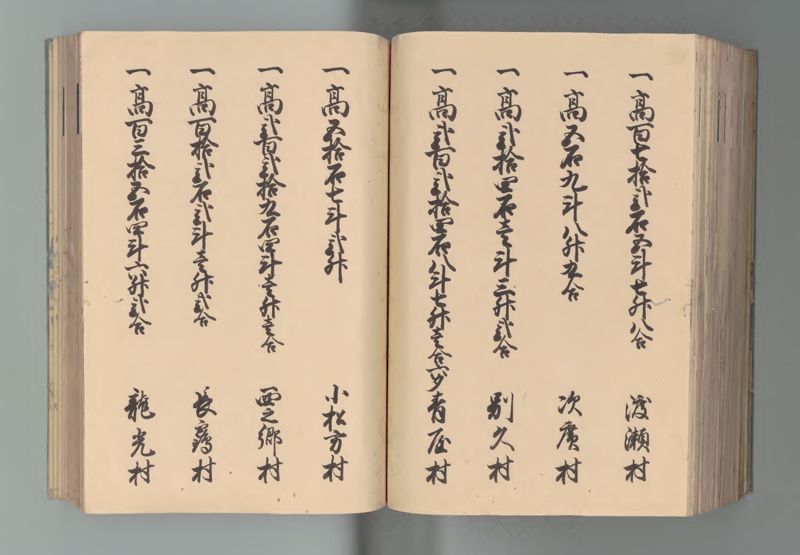 一高百七拾弐石五斗七升八合 渡瀬村
一高五石九斗八升五合 次廣村
一高弐拾四石壱斗三升弐合 別久村
一高弐百弐拾四石八斗七升壱合六夕 青屋村
一高五拾石七斗弐升 小松方村
一高弐百弐拾九石四斗壱升壱合 西之郷村
一高百拾弐石弐斗壱升弐合 長窩村
一高百三拾五石四斗六升弐合 龍光村